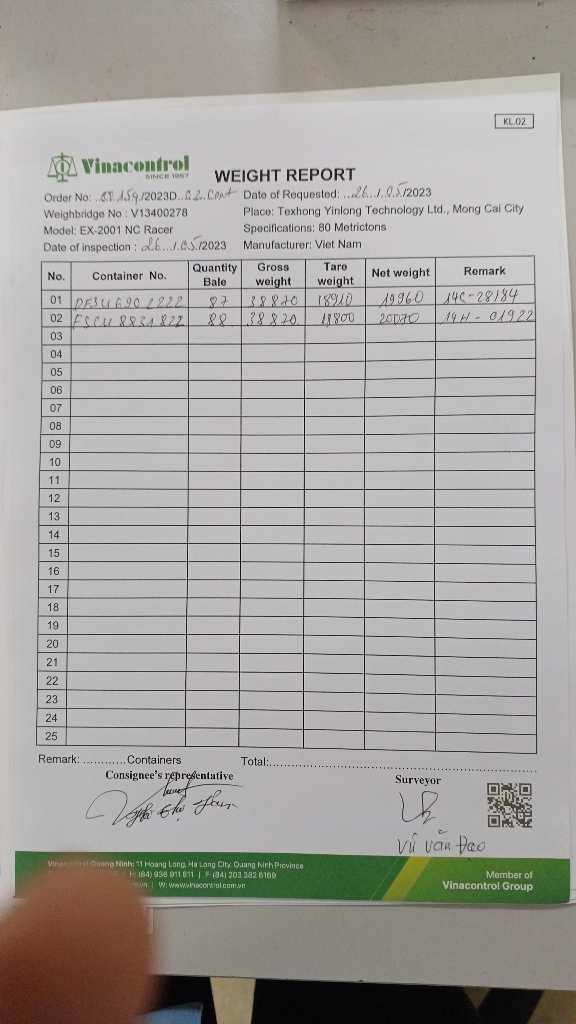 KL.02
Vinacontrol
SINCE 1957
WEIGHT REPORT
Order No: 159/2023D 02 Cont Date of Requested: 26/05/2023
Weighbridge No : V13400278 Place: Texhong Yinlong Technology Ltd., Mong Cai City
Model: EX-2001 NC Racer Specifications: 80 Metrictons
Date of inspection : 26/05/2023 Manufacturer: Viet Nam
No. Container No. Quantity Bale Gross weight Tare weight Net weight Remark
01 DFSU 690 2222 87 38870 18910 19960 14C-28184
02 FSCU 8831822 88 38870 18800 20070 14H-01922
03
04
05
06
07
08
09
10
11
12
13
14
15
16
17
18
19
20
21
22
23
24
25
Remark: ............Containers Total:
Consignee's representative Surveyor
Vũ Văn Đạo
Vinacontrol Quang Ninh: 11 Hoang Long, Ha Long City, Quang Ninh Province
H: (84) 936 911 811 | F: (84) 203 382 6169
W: www.vinacontrol.com.vn
Member of
Vinacontrol Group